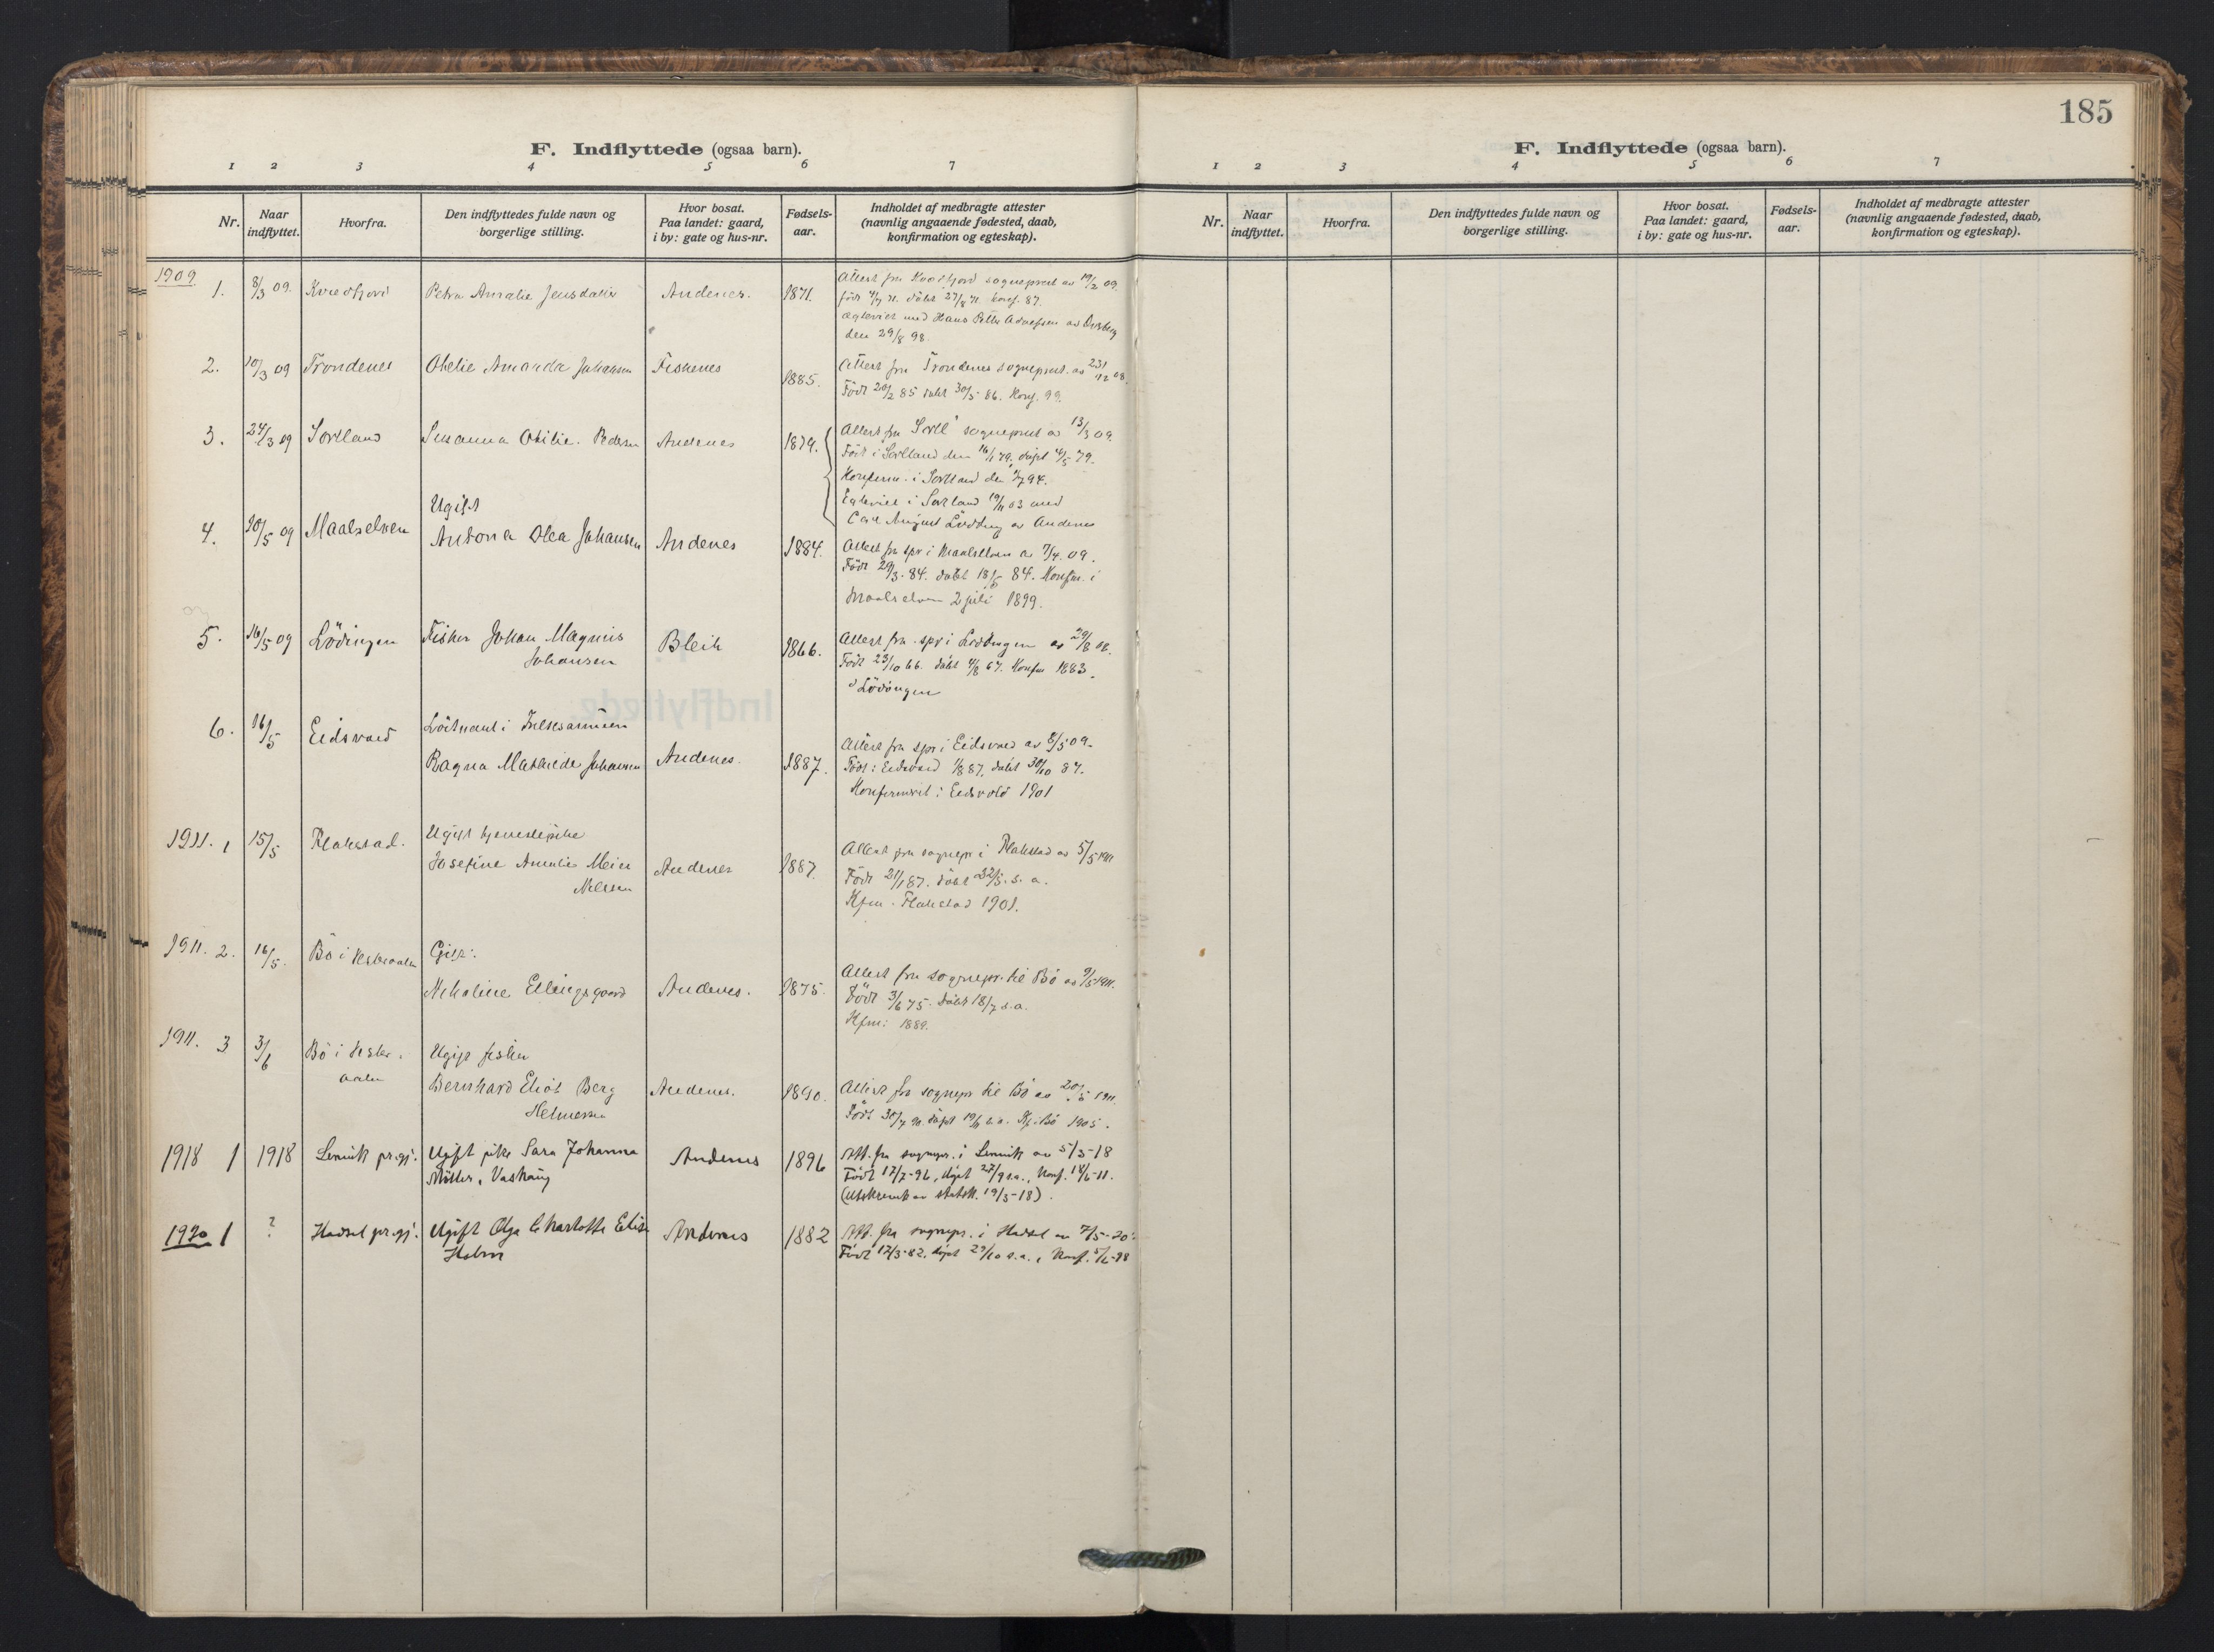 185
F. Indflyttede (ogsaa barn).
1 2 3 4 5 6 7
Nr.
Naar indflyttet.
Hvorfra.
Den indflyttedes fulde navn og borgerlige stilling.
Hvor bosat. Paa landet: gaard, i by: gate og hus-nr.
Fødsels-aar.
Indholdet af medbragte attester (navnlig angaaende fødested, daab, konfirmation og egteskap).
1909
1. 8/3 09. Kvædfjord Petra Amalie Jensdatter Andenes. 1871.
Attest fra Kvædfjord sogneprest av 19/2 09.
født 4/7 71. døbt 27/8 71. konf. 87.
ægteviet med Hans Petter
den 29/8 98.
2. 10/3 09 Trondenes Otelie Amanda Johansen Fiskenes 1885.
Attest fra Trondenes sogneprest. av 23/12 08.
Født 20/2 85 døbt 30/5 86. Konf. 99.
3. 24/3 09 Sortland Susanna Otilie. Pedersen Andenes 1879.
Attest fra Sortl sogneprest av 13/3 09.
Født i Sortland den 16/1 79. døpt 4/5 79.
Konferm. i Sortland den 94.
Egteviet i Sortland 19/11 03 med
Carl August Lödding av Andenes
Ugift
4. 10/5 09 Maalselven Antona Olea Johansen Andenes 1884.
Attest fra spr i Maalselven av 7/4. 09.
Født 29/3-84. døbt 18/5 84. Konfm. i
Maalselven 2 juli 1899.
5. 16/5 09 Lödingen Fisker Johan Magnus
Johansen Bleik 1866.
Attest fra spr i Lödingen av 29/8 08.
Født 23/10 66. døbt 4/8 67. Konfm 1883.
i Lödingen
6. 16/5 Eidsvold Löitnant i Frelsesarmeen
Ragna Mathilde Johansen Andenes. 1887.
Attest fra spr i Eidsvold av 8/5 09.
Født i Eidsvold 1/8 87. døbt 30/10 87.
Konfirmert i Eidsvold 1901
1911. 1 15/5 Flakstad. Ugift tjenestepike
Josefine Amalie Meier
Nilsen Andenes 1887.
Attest fra sognepr i Flakstad av 5/5 1911
Født 21/1 87. døbt 22/5. s. a.
Kfm. Flakstad 1901.
1911. 2. 16/5. Bö i Vesteraalen Gift:
Nikoline Ellingsgaard Andenes. 1875.
Attest fra sognepr. til Bö av 9/5 1911.
Født 3/6 75. døbt 18/7 s.a.
Kfm: 1889.
1911. 3 3/6 Bö i Vester-
aalen Ugift fisker
Bernhard Eliot Berg
Helmersen Andenes. 1890.
Attest fra sognepr til Bö av 20/5 1911.
Født 30/7 90. døpt 19/ s.a. Kf. i Bö 1905.
1918 1 1918 Lenvik pr.gj. Ugift pike Sara Johanna
Möller, Vashaug Andenes 1896
Att. fra sognepr. i Lenvik av 5/3-18
Født 17/7-96, döpt 27/9 s.a., Konf. 18/6-11.
(Utskrevet av statsk. 19/3-18).
1920 1 ? Hadsel pr.gj. Ugift Olga Charlotte Elise
Holm Andenes 1882
Att. fra sognepr. i Hadsel av 7/5-20.
Født 12/3-82, döpt 29/10 s.a., Konf. 5/6-98
F. Indflyttede (ogsaa barn).
1 2 3 4 5 6 7
Nr.
Naar indflyttet.
Hvorfra.
Den indflyttedes fulde navn og borgerlige stilling.
Hvor bosat. Paa landet: gaard, i by: gate og hus-nr.
Fødsels-aar.
Indholdet af medbragte attester (navnlig angaaende fødested, daab, konfirmation og egteskap).